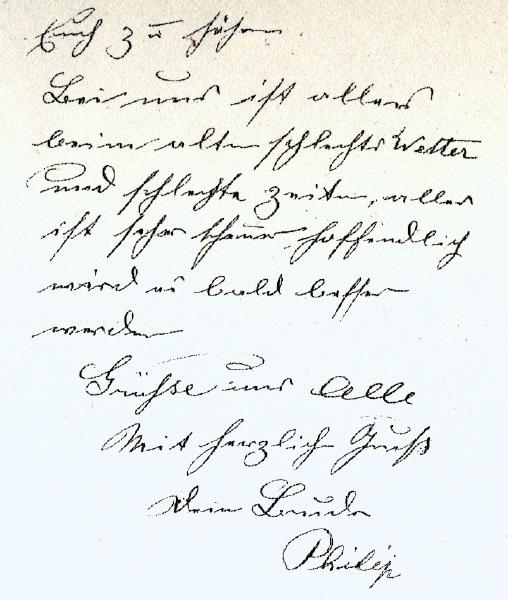 Euch zu hören.
Bei uns ist alles
beim alten schlechts Wetter
und schlechte Zeiten, alles
ist sehr theuer hoffendlich
wird es bald besser
werden
Grühse uns Alle
Mit herzlich Gruß
Dein Bruder
Philip